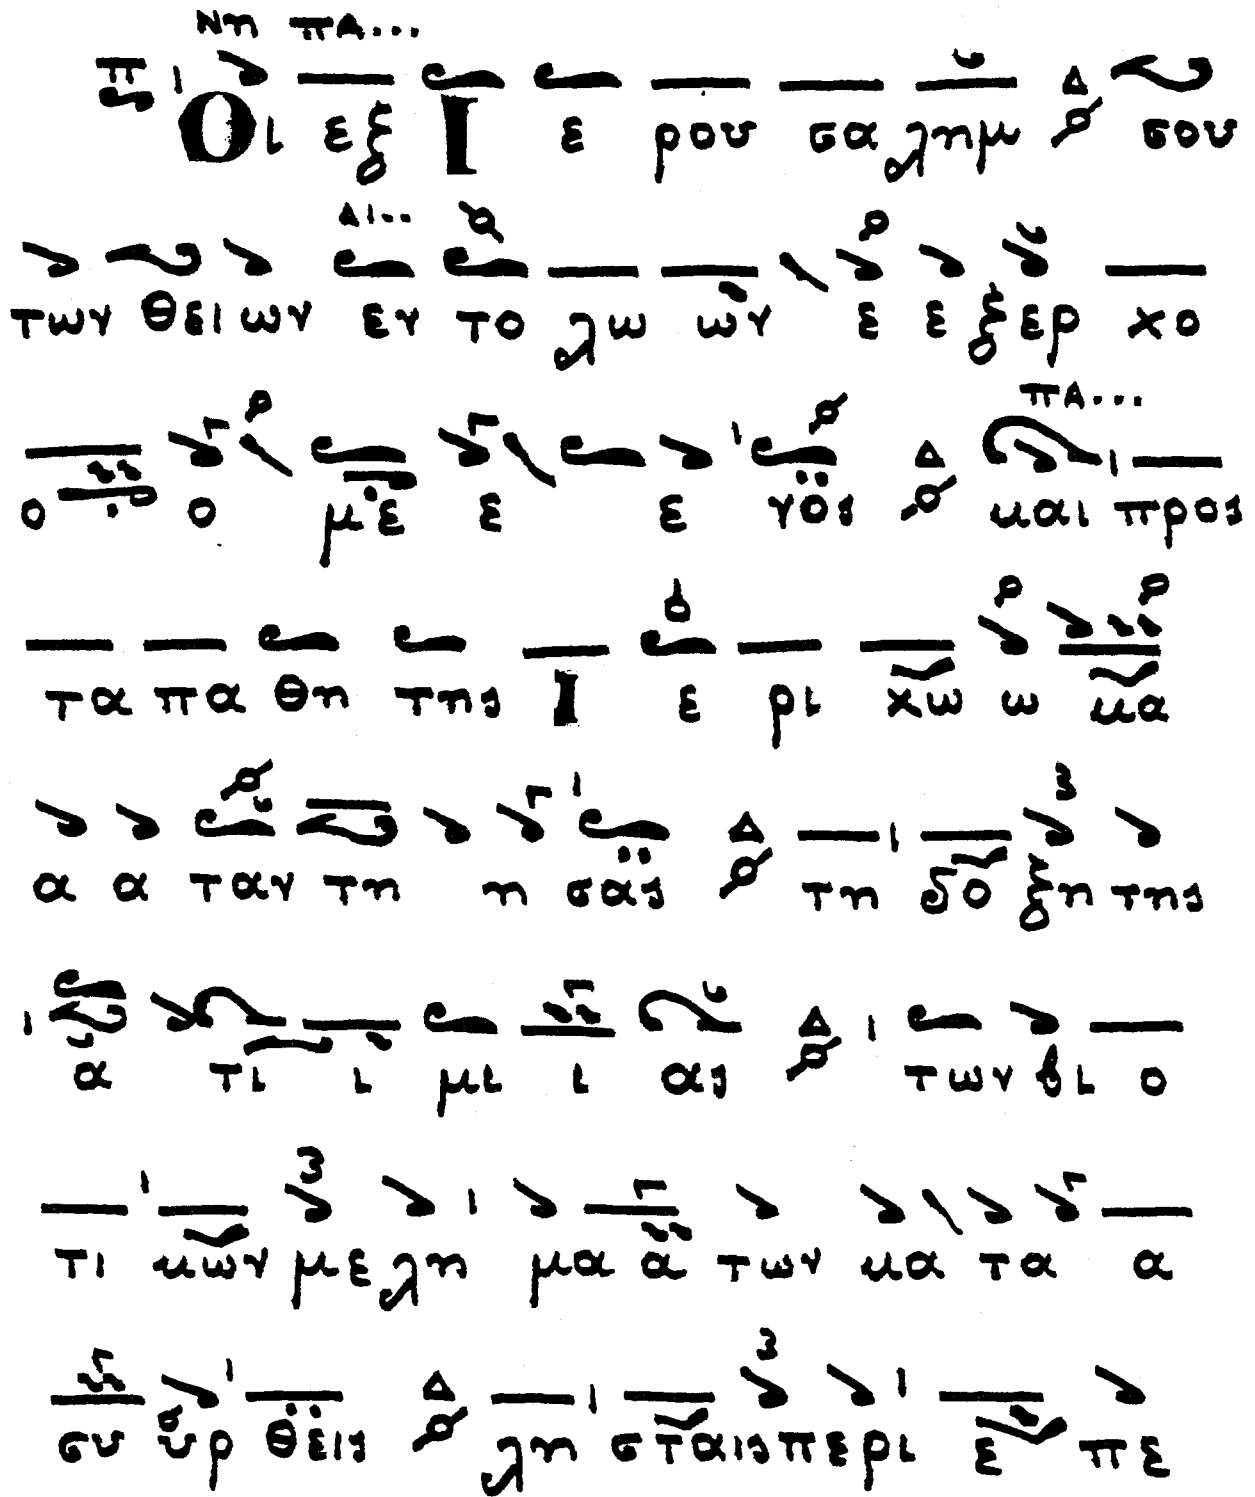 Νη πΑ...
Οι εξ Ι ε ρου σα λημ Δ σου
Δι..
των θει ων εν το λω ων ε ε ξερ χο
πΑ...
ο ο με ε ε νος Δ και προς
τα πα θη της Ι ε ρι χω ω κα
α α ταν τη η σας Δ τη δο ξη της
α τι ι μι ι ας Δ των βι ο
τι κων με λη μα α των κα τα α
συ υρ θεις Δ λη σταις περι ε πε